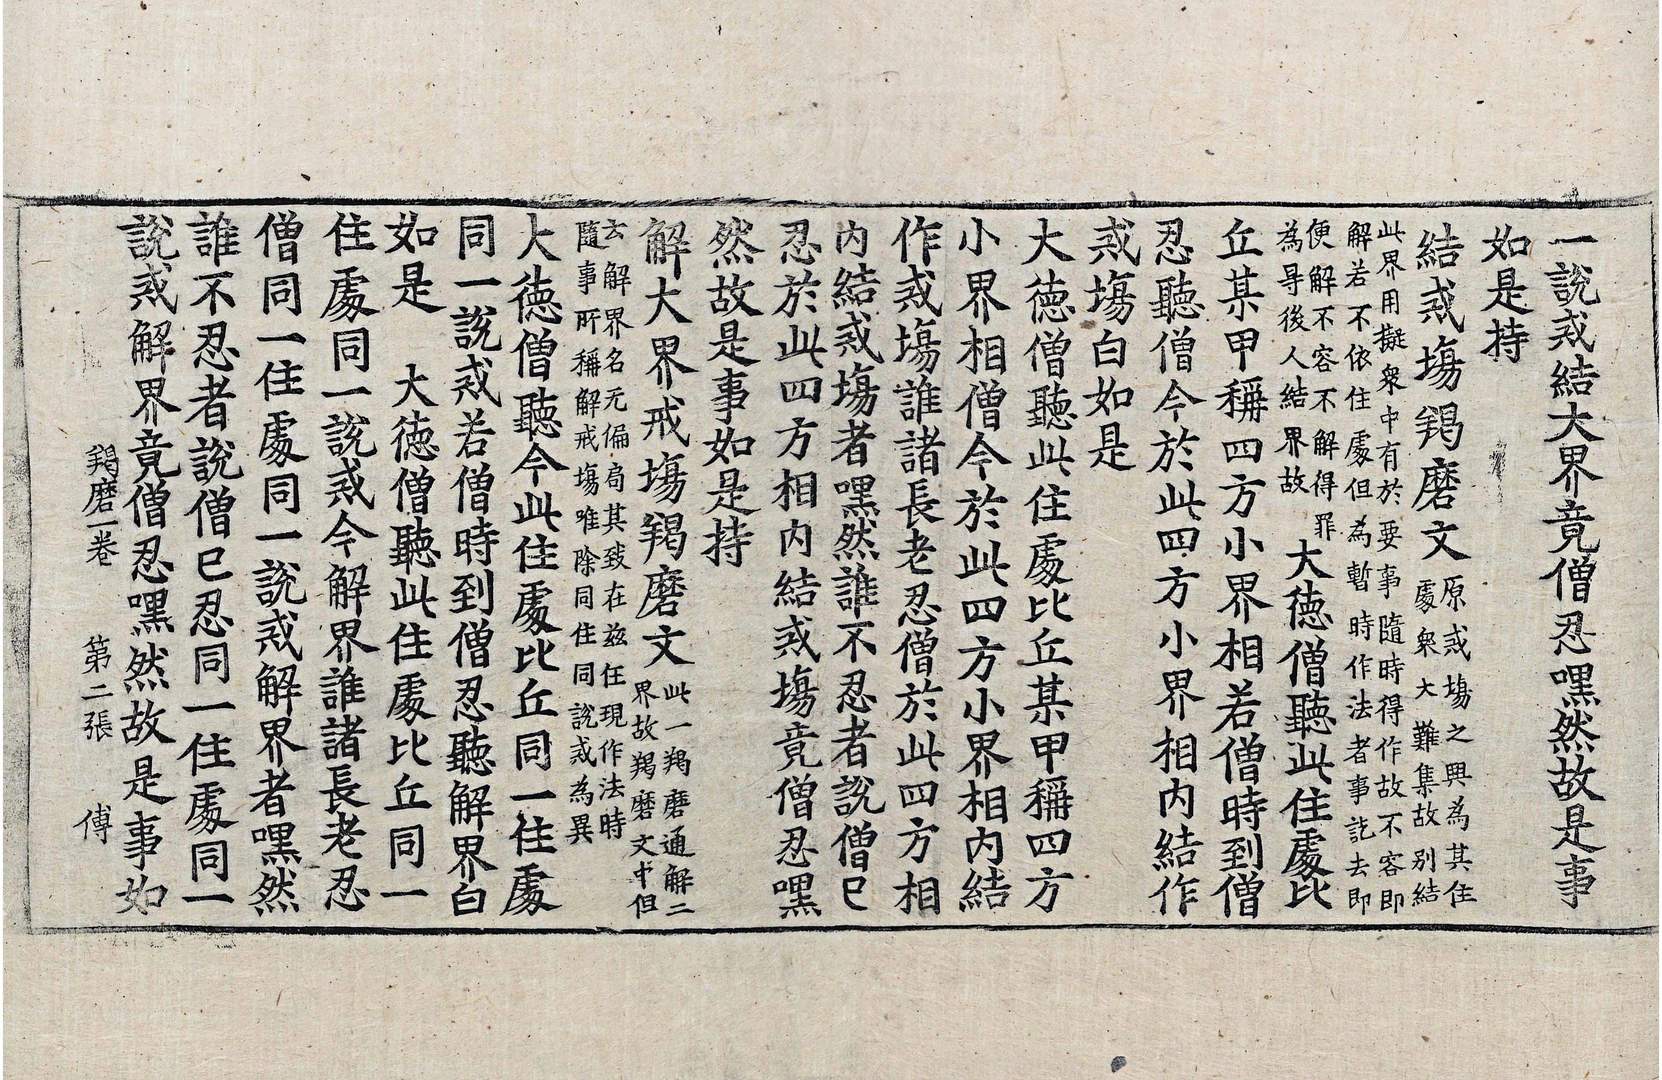 一說戒結大界竟僧忍嘿然故是事
如是持
結戒塲羯磨文
原戒塲之興為其住
處衆大難集故別結
此界用擬衆中有於要事隨時得作故不容即
解若不依住處但為暫時作法者事訖去即
便解不容不解得罪
為㝵後人結界故
大德僧聽此住處比
丘某甲稱四方小界相若僧時到僧
忍聽僧今於此四方小界相內結作
戒塲白如是
大德僧聽此住處比丘某甲稱四方
小界相僧今於此四方小界相內結
作戒塲誰諸長老忍僧於此四方相
內結戒塲者嘿然誰不忍者說僧已
忍於此四方相內結戒塲竟僧忍嘿
然故是事如是持
解大界戒塲羯磨文
此一羯磨通解二
界故羯磨文中但
云解界名无偏局其致在兹任現作法時
隨事所稱解戒塲唯除同住同說戒為異
大德僧聽今此住處比丘同一住處
同一說戒若僧時到僧忍聽解界白
如是　大德僧聽此住處比丘同一
住處同一說戒今解界誰諸長老忍
僧同一住處同一說戒解界者嘿然
誰不忍者說僧已忍同一住處同一
說戒解界竟僧忍嘿然故是事如
羯磨一卷　第二張　傅